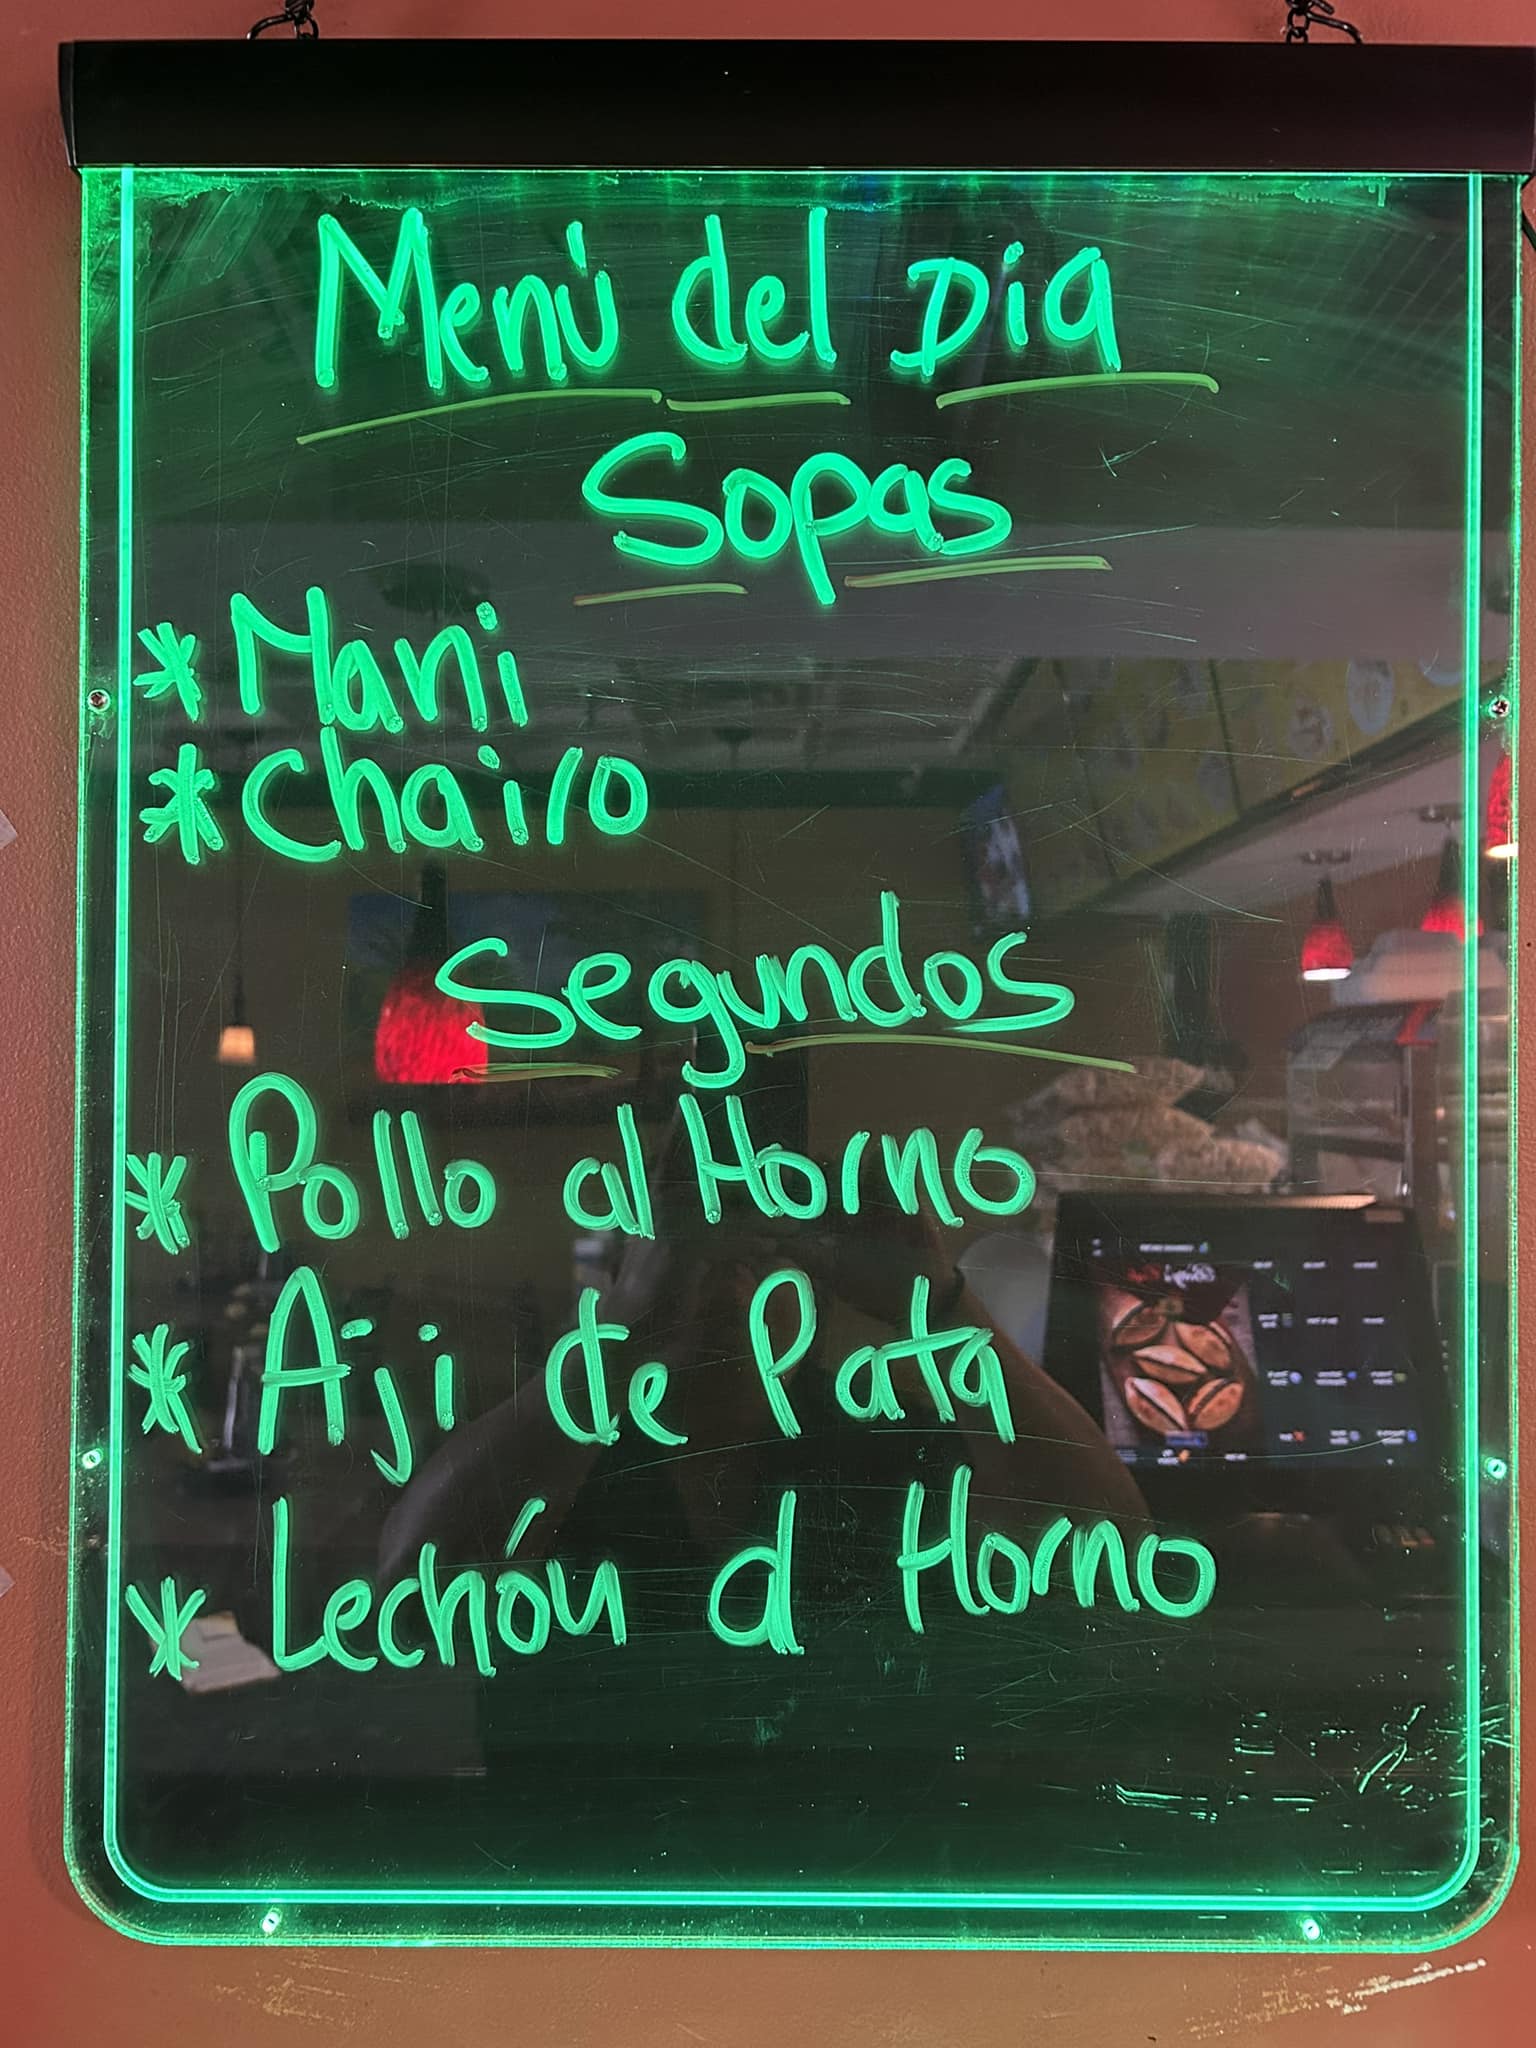 Menú del Dia
Sopas
* Mani
* Chairo
Segundos
* Pollo al Horno
* Aji de Pata
* Lechón al Horno